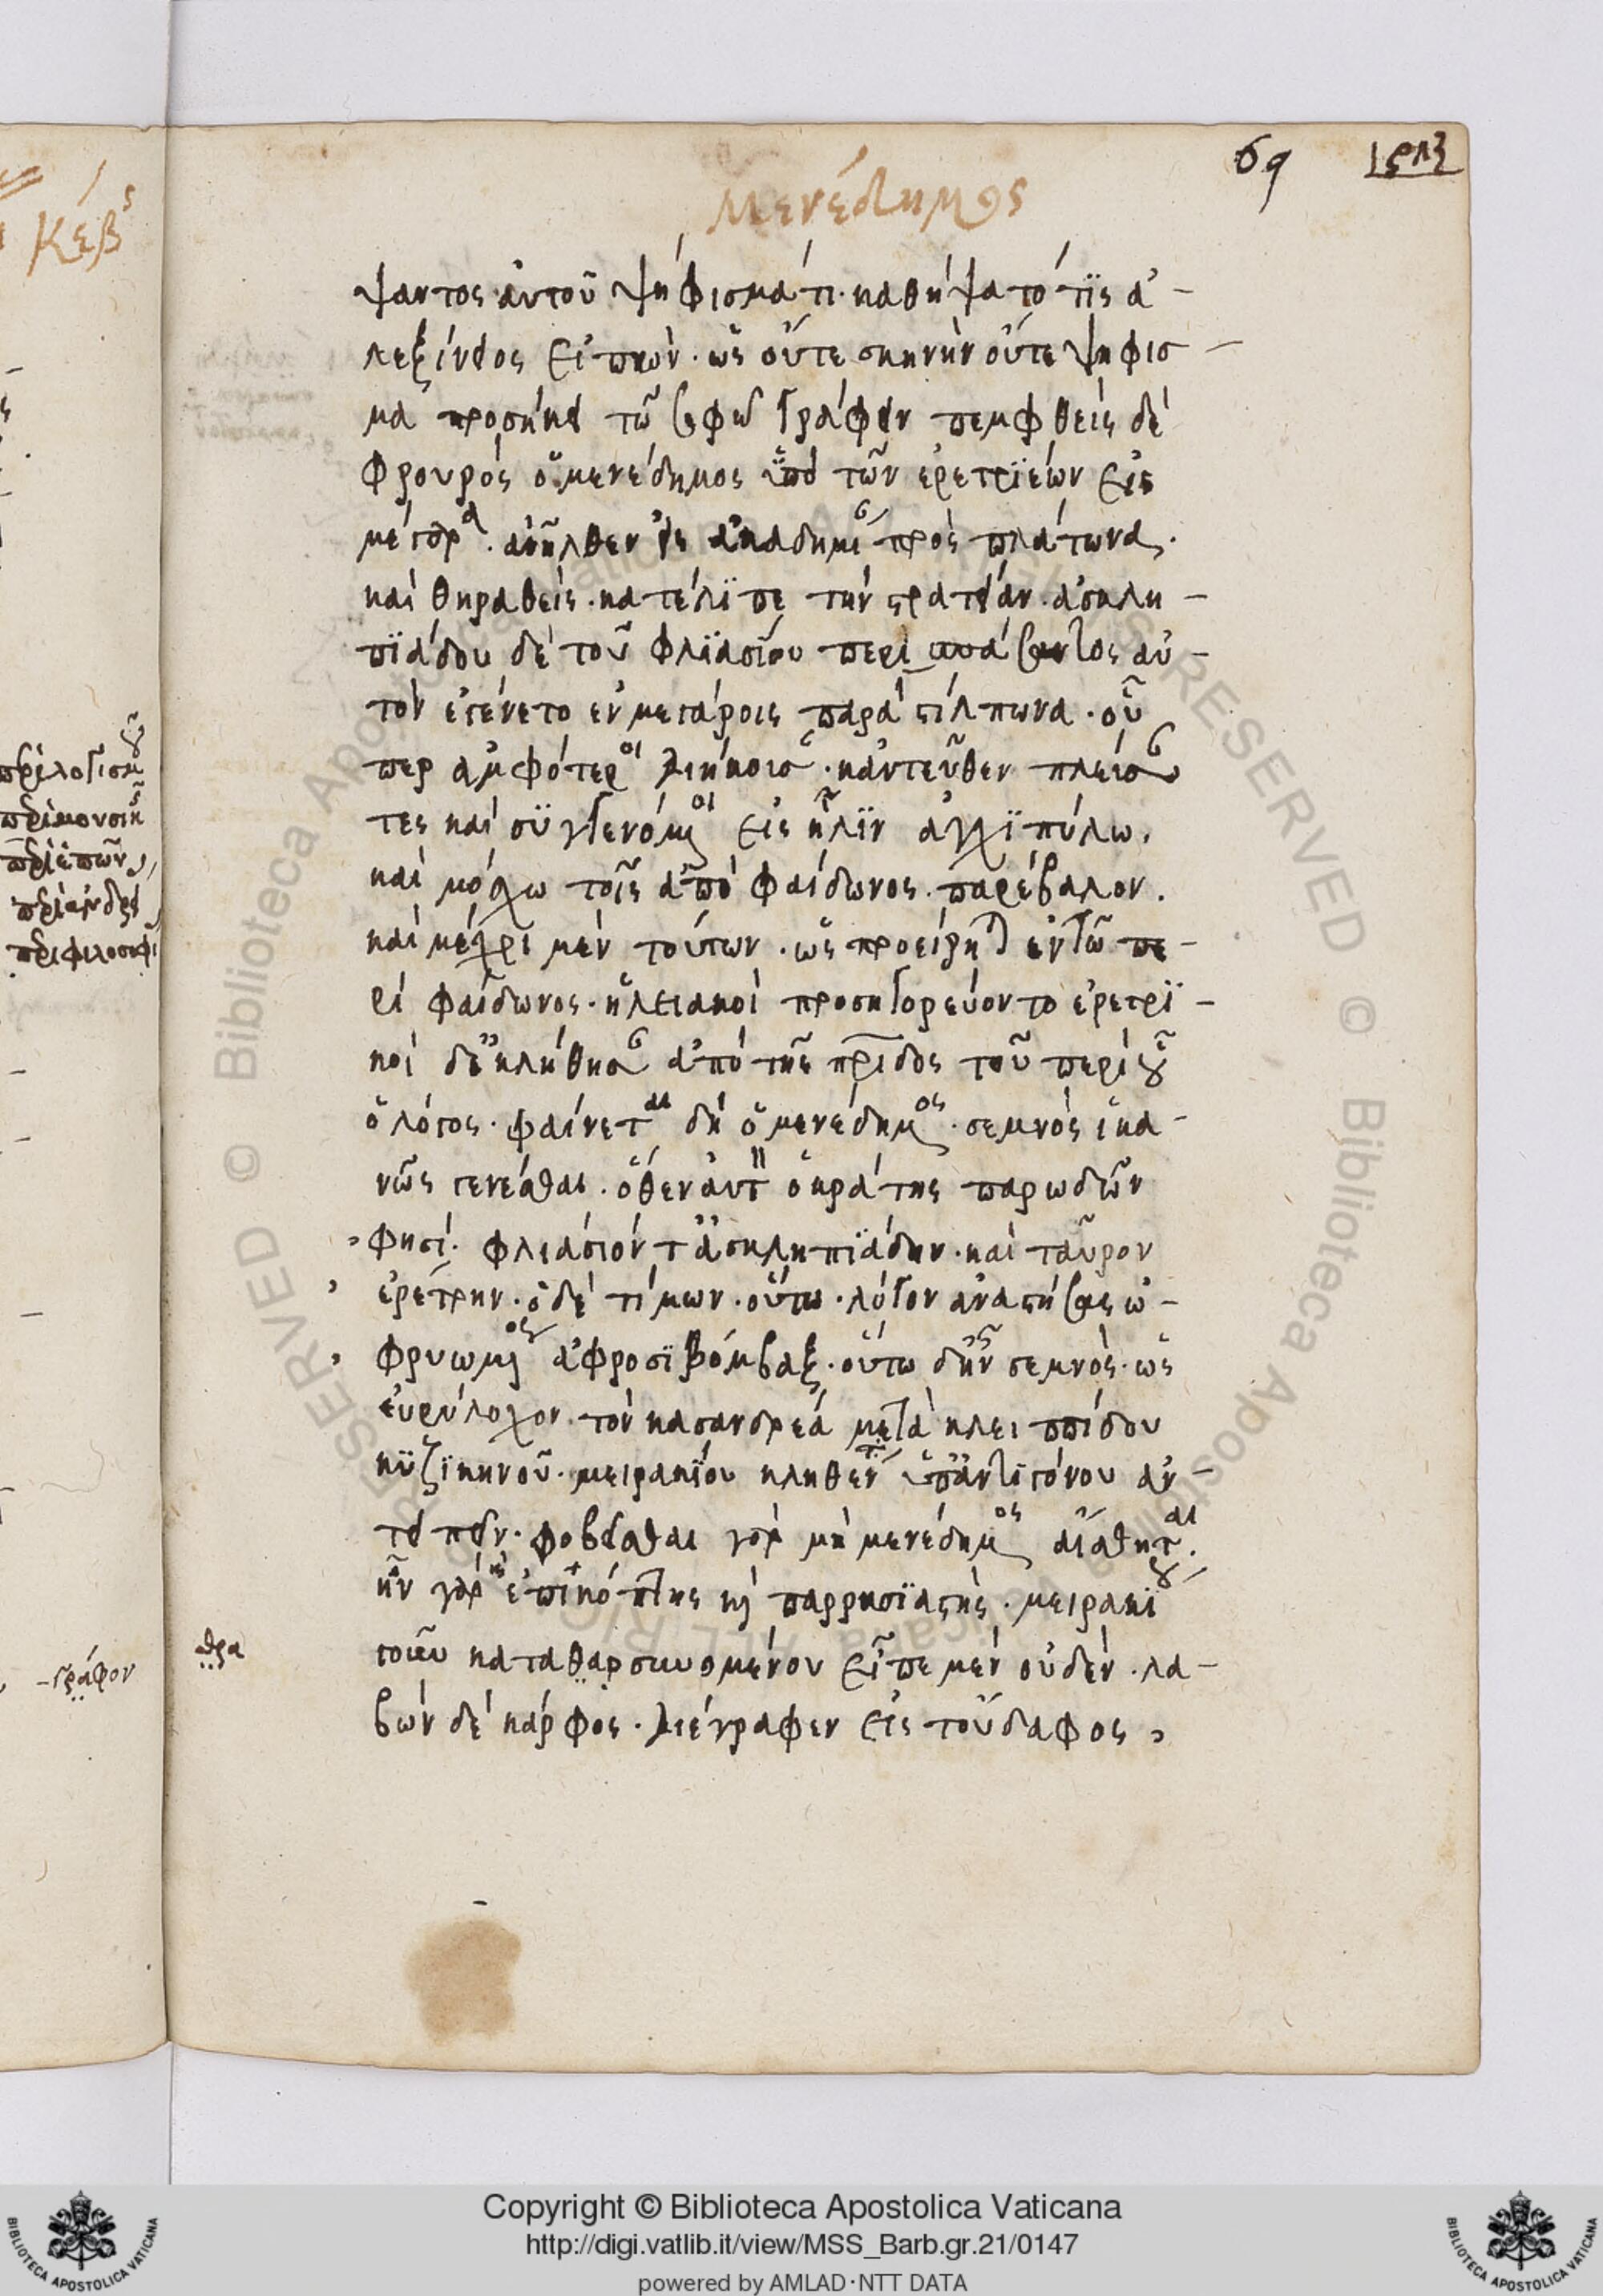 69
Μενέδημος
ψαντος αὐτοῦ ψήφισμά τι· καθήψατό τϊς ἀ-
λεξίνειος εἰπὼν· ὡς οὔτε σκηνὴν οὔτε ψηφισ-
μα προσήκει τῶ σοφῶ γράφειν πεμφθεὶς δὲ
φρουρὸς ὁ μενέδημος ὑπὸ τῶν ἐρετριέων εἰς
μέγαρα· ἀνῆλθεν εἰς ἀκαδημίαν πρὸς πλάτωνα·
καὶ θηραθεὶς· κατέλϊπε τὴν στρατείαν· ἀσκλη-
πϊάδου δὲ τοῦ φλϊασίου περισπάσαντος αὐ-
τὸν ἐγένετο ἐν μεγάροις παρὰ στίλπωνα· οὗ
περ ἀμφότεροι διήκουσαν· κἀντεῦθεν πλεύσαν
τες καὶ συγγενόμενοι εἰς ἦλϊν ἀγχϊπύλω·
καὶ μόσχω τοῖς ἀπὸ φαίδωνος· παρέβαλον·
καὶ μέχρι μὲν τούτων· ὡς προείρηται ἐν τῶ πε-
ρὶ φαίδωνος· ἠλειακοὶ προσηγορεύοντο ἐρετρϊ-
κοὶ δ' ἐκλήθησαν ἀπὸ τῆς πρίδος τοῦ περὶ οὗ
ὁ λόγος· φαίνεται δὴ ὁ μενέδημος· σεμνὸς ἱκα-
νῶς γενέσθαι· ὅθεν αὐτὸν ὁ κράτης παρωδῶν
φησί· φλιάσιόν τ' ἀσκληπϊάδην· καὶ ταῦρον
ἐρέτρην· ὁ δὲ τίμων· οὕτω· λόγον ἀναστήσας ὠ-
φρυωμένος ἀφροσϊβόμβαξ· οὕτω δ' ἦν σεμνὸς· ὡς
εὐρύλοχον· τὸν κασανδρέα μετὰ κλειππίδου
κϋζϊκηνοῦ· μειρακίου κληθέντα ὑπ' ἀντϊγόνου ἀν-
τειπεῖν· φοβεῖσθαι γὰρ μὴ μενέδημος αἴσθηται·
ἦν γὰρ καὶ ἐπϊκόπτης καὶ παρρησϊαστής· μειρακίου
γοῦν καταθαρσυνομένου εἶπε μὲν οὐδὲν· λα-
βὼν δὲ κάρφος· διέγραφεν εἰς τοὔδαφος
θρα
Κέβς
περὶ λογισμοῦ
περὶ μουσικῆς
περὶ ἐπῶν
περὶ ἀνδρείας
περὶ φιλοσοφίας
-γράφον
Copyright © Biblioteca Apostolica Vaticana
http://digi.vatlib.it/view/MSS_Barb.gr.21/0147
powered by AMLAD·NTT DATA
BIBLIOTECA APOSTOLICA VATICANA
BIBLIOTECA APOSTOLICA VATICANA